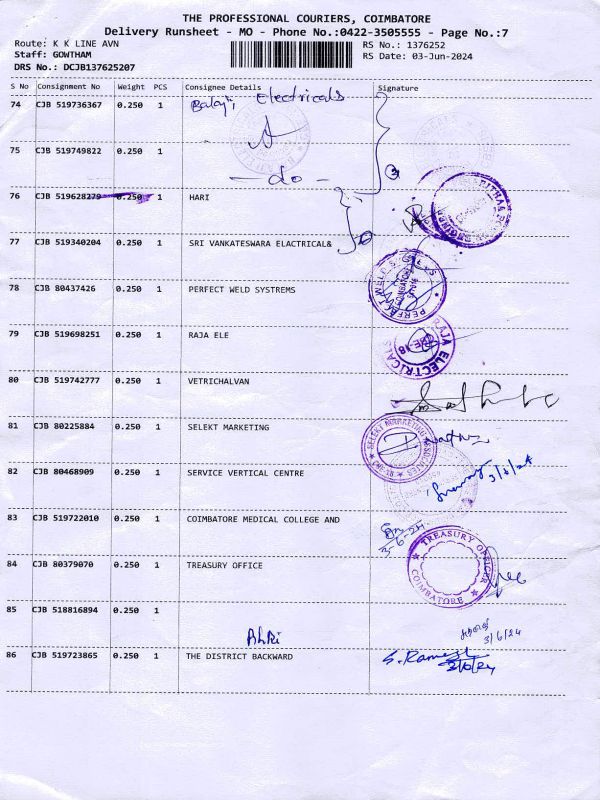 THE PROFESSIONAL COURIERS, COIMBATORE
Delivery Runsheet - MO - Phone No.:0422-3505555 - Page No.:7
Route: K K LINE AVN
RS No.: 1376252
Staff: GOWTHAM
RS Date: 03-Jun-2024
DRS No.: DCJB137625207
S No Consignment No Weight PCS Consignee Details Signature
74 CJB 519736367 0.250 1 Balaji Electricals
75 CJB 519749822 0.250 1
— do —
76 CJB 519628279 0.250 1 HARI
77 CJB 519340204 0.250 1 SRI VANKATESWARA ELACTRICAL&
78 CJB 80437426 0.250 1 PERFECT WELD SYSTREMS
79 CJB 519698251 0.250 1 RAJA ELE
RAJA ELECTRICALS
80 CJB 519742777 0.250 1 VETRICHALVAN
81 CJB 80225884 0.250 1 SELEKT MARKETING
82 CJB 80468909 0.250 1 SERVICE VERTICAL CENTRE
3/6/24
83 CJB 519722010 0.250 1 COIMBATORE MEDICAL COLLEGE AND
3-6-24
84 CJB 80379070 0.250 1 TREASURY OFFICE
TREASURY OFFICER
COIMBATORE
85 CJB 518816894 0.250 1
3/6/24
86 CJB 519723865 0.250 1 THE DISTRICT BACKWARD
S. Ramesh